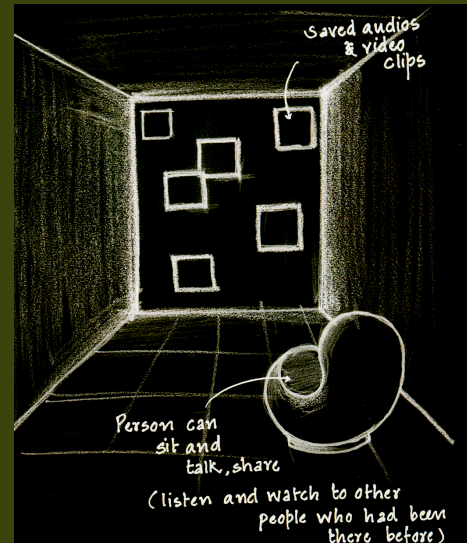 saved audios
& video
clips
Person can
sit and
talk, share
(listen and watch to other
people who had been
there before)